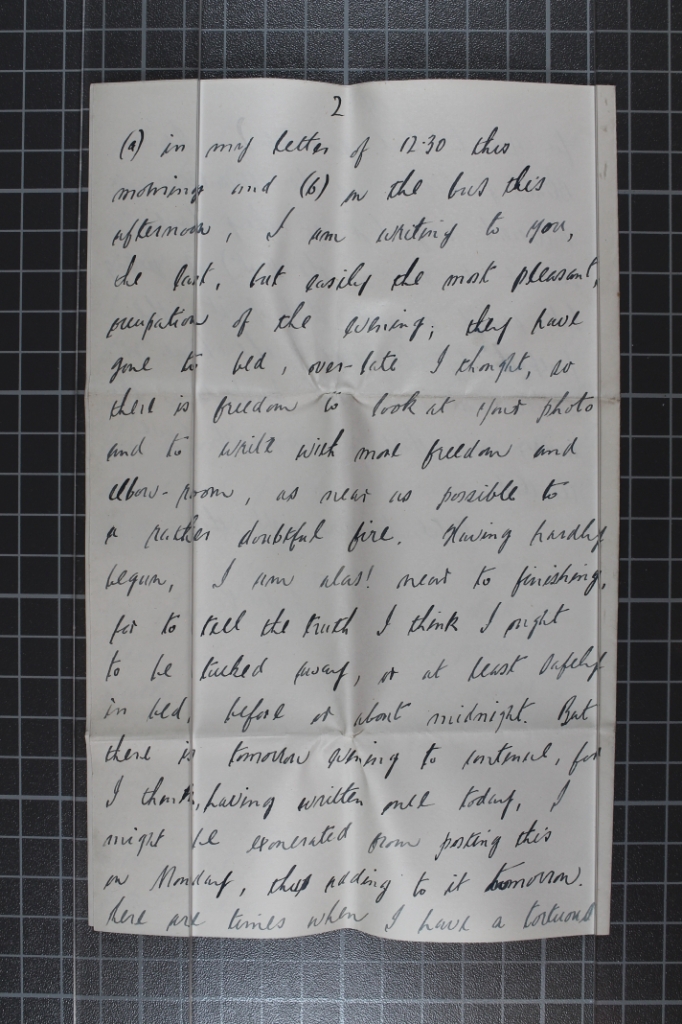 2
(a) in my letter of 12.30 this
morning and (b) in the bus this
afternoon, I am writing to you,
the last, but easily the most pleasant,
occupation of the evening; they have
gone to bed, over-late I thought, so
there is freedom to look at your photo
and to write with more freedom and
elbow-room, as near as possible to
a rather doubtful fire. Having hardly
begun, I am alas! near to finishing,
for to tell the truth I think I ought
to be tucked away, or at least safely
in bed, before or about midnight. But
there is tomorrow evening to continue, for
I think, having written once today, I
might be exonerated from posting this
on Monday, thus adding to it tomorrow.
here are times when I have a tortuous